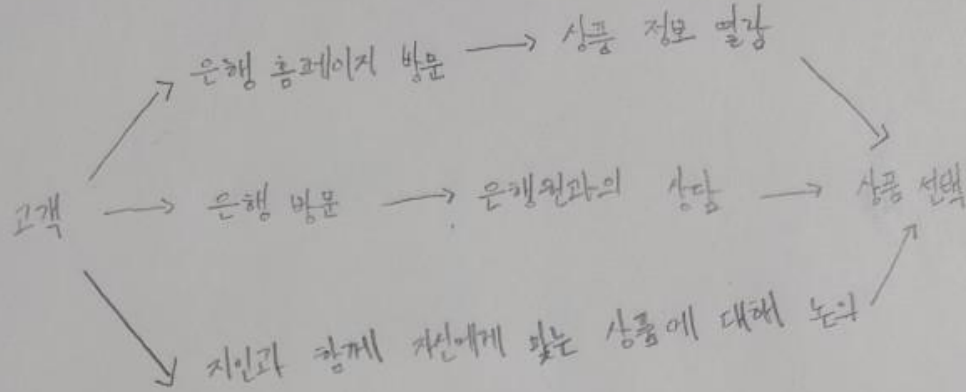 은행 홈페이지 방문 → 상품 정보 열람
고객 → 은행 방문 → 은행원과의 상담 → 상품 선택
지인과 함께 자신에게 맞는 상품에 대해 논의